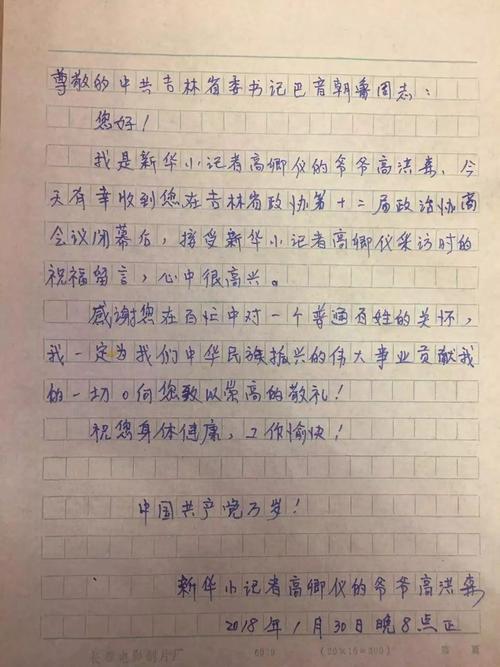 尊敬的中共吉林省委书记巴音朝鲁同志：
您好！
我是新华小记者高卿仪的爷爷高洪森、今
天有幸收到您在吉林省政协第十二届政治协商
会议闭幕后，接受新华小记者高卿仪采访时的
祝福留言，心中很高兴。
感谢您在百忙中对一个普通百姓的关怀，
我一定为我们中华民族振兴的伟大事业贡献我
的一切。向您致以崇高的敬礼！
祝您身体健康，工作愉快！
中国共产党万岁！
新华小记者高卿仪的爷爷高洪森
2018年1月30日晚8点正
长春电影制片厂 (20×15=300) 第 页